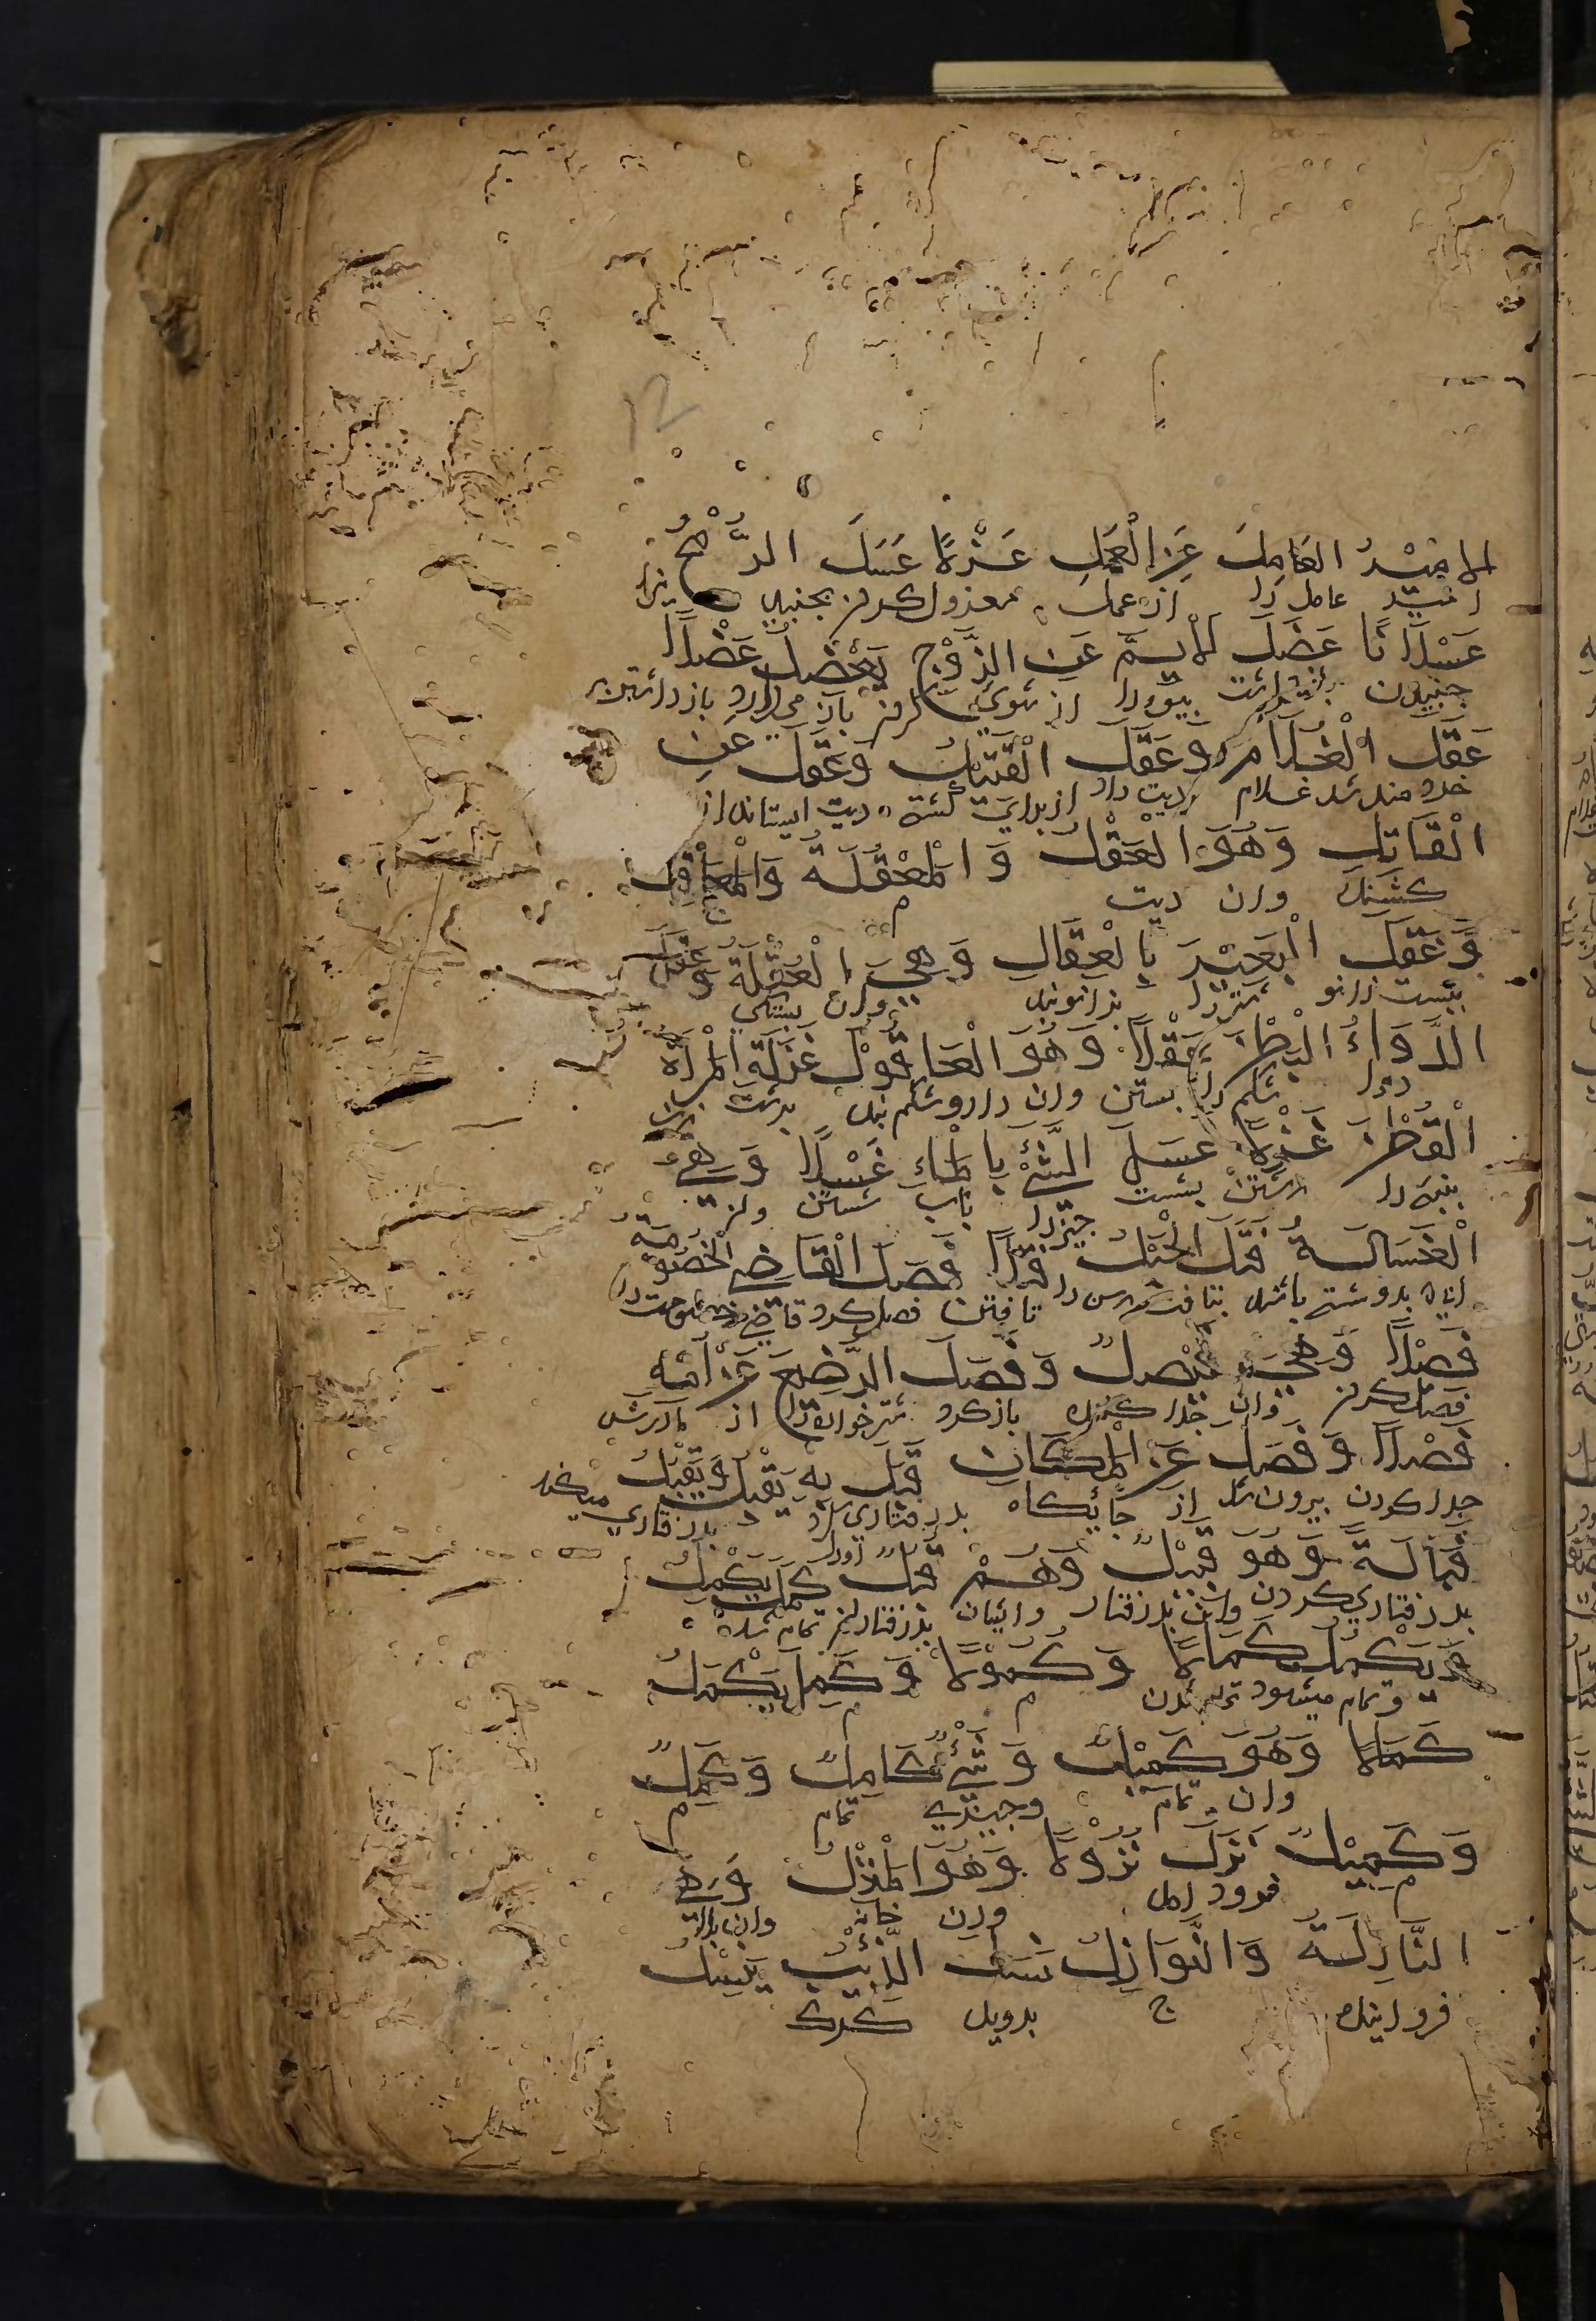 الامِيْرُ العَامِلَ عَنِ الْعَمَلِ عَزْلًا عَسَلَ الرُّمْحُ
امير عامل را از عمل معزول کردن بجنبيد نيزه
عَسْلَانًا عَضَلَ الْاَيِّمَ عَنِ الزَّوْجِ يَعْضُلُ عَضْلًا
جنبيدن بازداشت بيوه را از شوی کردن باز می دارد بازداشتن
عَقَلَ الْغُلَامُ وَعَقَلَ الْقَتِيْلَ وَعَقَلَ عَنِ
خردمند شد غلام ديت داد از برای کشته ديت ايستاند از
الْقَاتِلِ وَهُوَ الْعَقْلُ وَ الْمَعْقُلَةُ وَالْمَعَاقِلُ
کشنده وان ديت م ج
وَعَقَلَ الْبَعِيْرَ بِالْعِقَالِ وَهِيَ الْعُقْلَةُ وَعَقَلَ
ببست زانو شتر را بزانوبند وان بستگی
الدَّوَاءُ الْبَطْنَ عَقْلًا وَهُوَ الْعَاقُوْلُ غَزَلَةِ الْمَرْأَةُ
دارو شکم را بستن وان دارو شکم بند برشت زن
الْقُطْنَ غَزْلًا غَسَلَ الشَّيْءَ بِالْمَاءِ غَسْلًا وَهِيَ
پنبه را رشتن بشست چيز را باب شستن وان
الْغُسَالَةُ فَتَلَ الْحَبْلَ فَتْلًا فَصَلَ الْقَاضِي الْخُصُوْمَةَ
بدو شسته باشند بتافت رسن را تافتن فصل کرد قاضی خصومت را
فَصْلًا وَهِيَ فَيْصَلٌ وَفَصَلَ الرَّضِيْعَ عَنْ اُمِّهِ
فصل کردن وان جدا کننده باز کرد شيرخواره را از مادرش
فَصْلًا وَفَصَلَ عَنِ الْمَكَانِ قَبَلَ بِهِ يَقْبُلُ وَيَقْبِلُ
جدا کردن بيرون شد از جايگاه بدرفتاری کرد بدرفتاری ميکند
قَبَالَةً وَهُوَ قَبِيْلٌ وَهُمْ قُبُلٌ كَمَلَ يَكْمُلُ
بدرفتاری کردن وان بدرفتار وايشان بدرفتاران تمام شد
وَيَكْمُلُ كَمَالًا وَكُمُوْلًا وَكَمِلَ يَكْمَلُ
وتمام ميشود تمام شدن م م
كَمَالًا وَهُوَ كَمِيْلٌ وَشَيْءٌ كَامِلٌ وَكَمِلٌ
وان تمام وچيزی تمام م
وَكَمِيْلٌ نَزَلَ نُزُوْلًا وَهُوَ الْمَنْزِلُ وَهِيَ
م فرود امد وان خانه وان بلا
النَّازِلَةُ وَالنَّوَازِلُ نَسَلَ الذِّئْبُ يَنْسِلُ
فرو اينده ج بدويد کرک